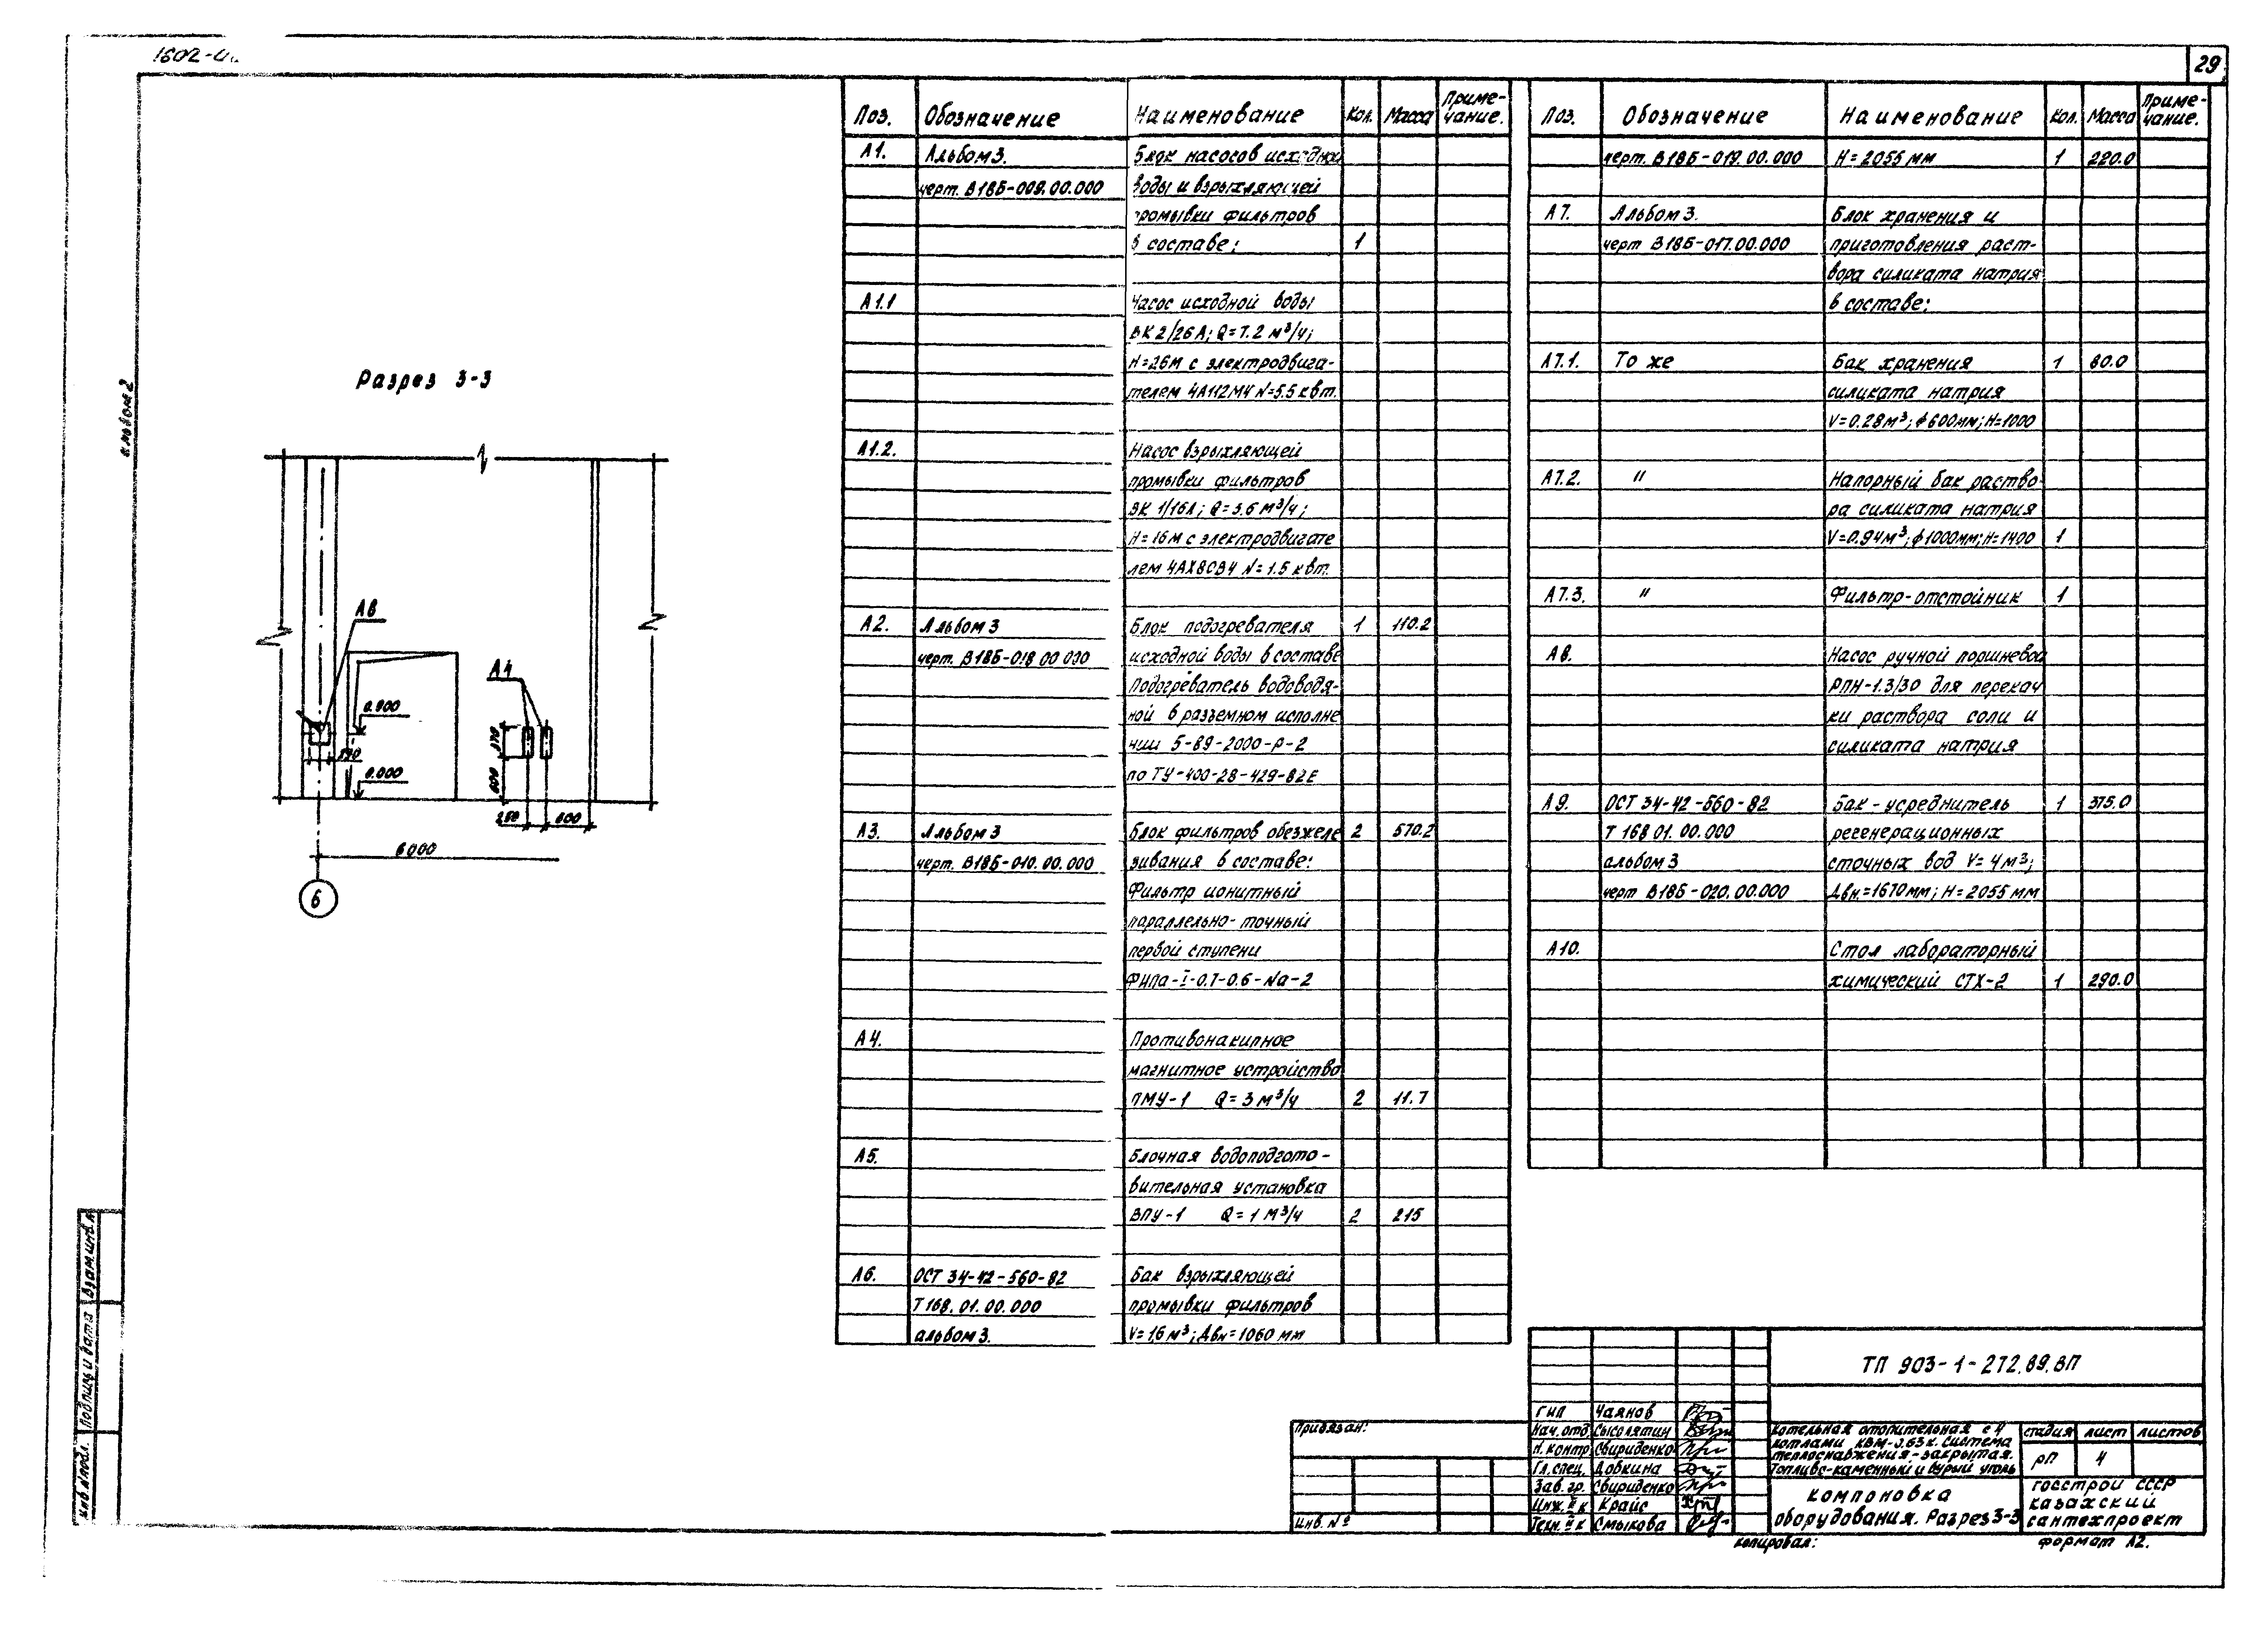 29
альбом 2
Разрез 3-3
А8
А4
0.000
6000
6
Поз. Обозначение Наименование Кол. Масса Приме-
чание.
А1. Альбом 3. Блок насосов исходной
черт. В18Б-009.00.000 воды и взрыхляющей
промывки фильтров
в составе: 1
А1.1 Насос исходной воды
ВК 2/26А; Q=7.2 м³/ч;
Н=26м с электродвига-
телем 4А112М4 N=5.5 квт.
А1.2. Насос взрыхляющей
промывки фильтров
ВК 1/16А; Q=3.6 м³/ч;
Н=16м с электродвигате
лем 4АХ80В4 N=1.5 квт.
А2. Альбом 3 Блок подогревателя 1 110.2
черт. В18Б-018.00.000 исходной воды в составе
Подогреватель водоводя-
ной в разъемном исполне
нии 5-89-2000-Р-2
по ТУ-400-28-429-82Е
А3. Альбом 3 Блок фильтров обезжеле 2 570.2
черт. В18Б-010.00.000 зивания в составе:
Фильтр ионитный
параллельно-точный
первой ступени
ФИПа-I-0.7-0.6-Na-2
А4. Противонакипное
магнитное устройство
ПМУ-1 Q=3 м³/ч 2 11.7
А5. Блочная водоподгото-
вительная установка
ВПУ-1 Q=1 м³/ч 2 215
А6. ОСТ 34-42-560-82 Бак взрыхляющей
Т 168.01.00.000 промывки фильтров
альбом 3. V=1.6 м³; Двн=1060 мм
Поз. Обозначение Наименование Кол. Масса Приме-
чание.
черт. В18Б-019.00.000 Н=2055 мм 1 220.0
А7. Альбом 3. Блок хранения и
черт В18Б-017.00.000 приготовления раст-
вора силиката натрия
в составе:
А7.1. То же Бак хранения 1 80.0
силиката натрия
V=0.28м³; ф600мм; Н=1000
А7.2. " Напорный бак раство
ра силиката натрия
V=0.94м³; ф1000мм; Н=1400 1
А7.3. " Фильтр-отстойник 1
А8. Насос ручной поршневой
РПН-1.3/30 для перекач
ки раствора соли и
силиката натрия
А9. ОСТ 34-42-560-82 Бак-усреднитель 1 375.0
Т 168.01.00.000 регенерационных
альбом 3 сточных вод V=4м³;
черт В18Б-020.00.000 Двн.=1670мм; Н=2055 мм
А10. Стол лабораторный
химический СТХ-2 1 290.0
ТП 903-1-272.89.ВП
ГИП Чаянов
Нач.отд Сысолятин
Н.контр Свириденко
Гл.спец. Довкина
Зав.гр. Свириденко
Инж. II к Крайс
Техн. II к Смыкова
Котельная отопительная с 4
котлами КВм-0.63к. Система
теплоснабжения-закрытая.
Топливо-каменный и бурый уголь
стадия лист листов
рп 4
компоновка
оборудования. Разрез 3-3
госстрой СССР
казахский
сантехпроект
Привязан:
инв. №
копировал: формат А2.
Взам.инв.№
Подпись и дата
инв.№подл.